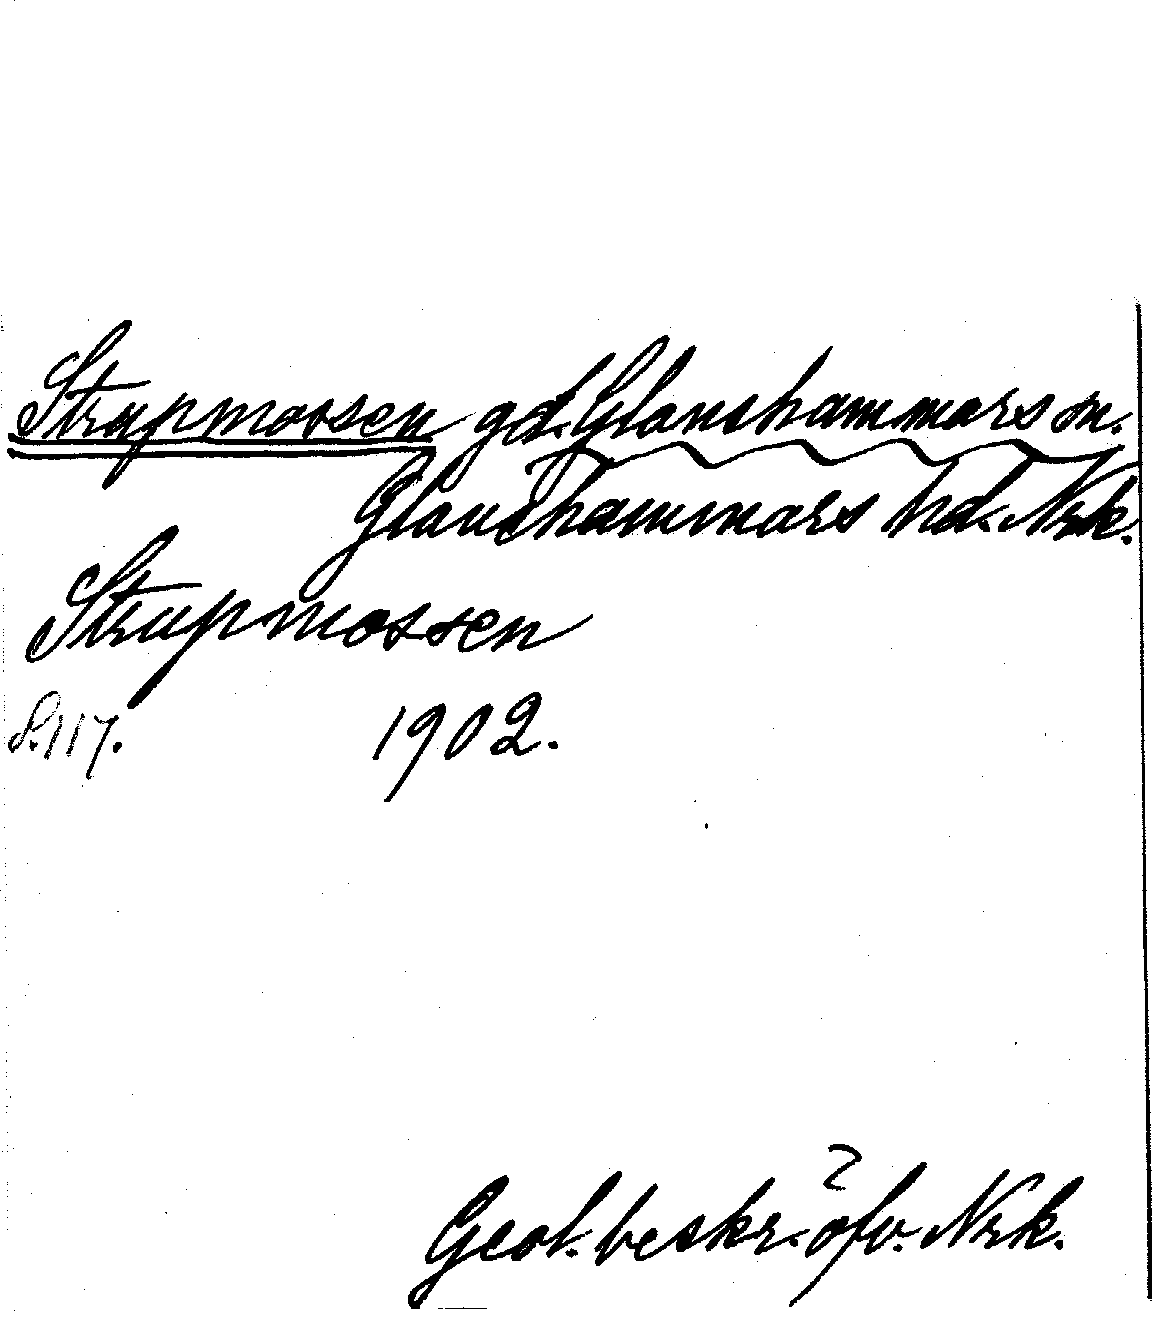 Strupmossen gd. Glanshammars sn.
Glanshammars hd. Nrk.
Strupmossen
S. 117. 1902.
Geol. beskr. öfv. Nrk.